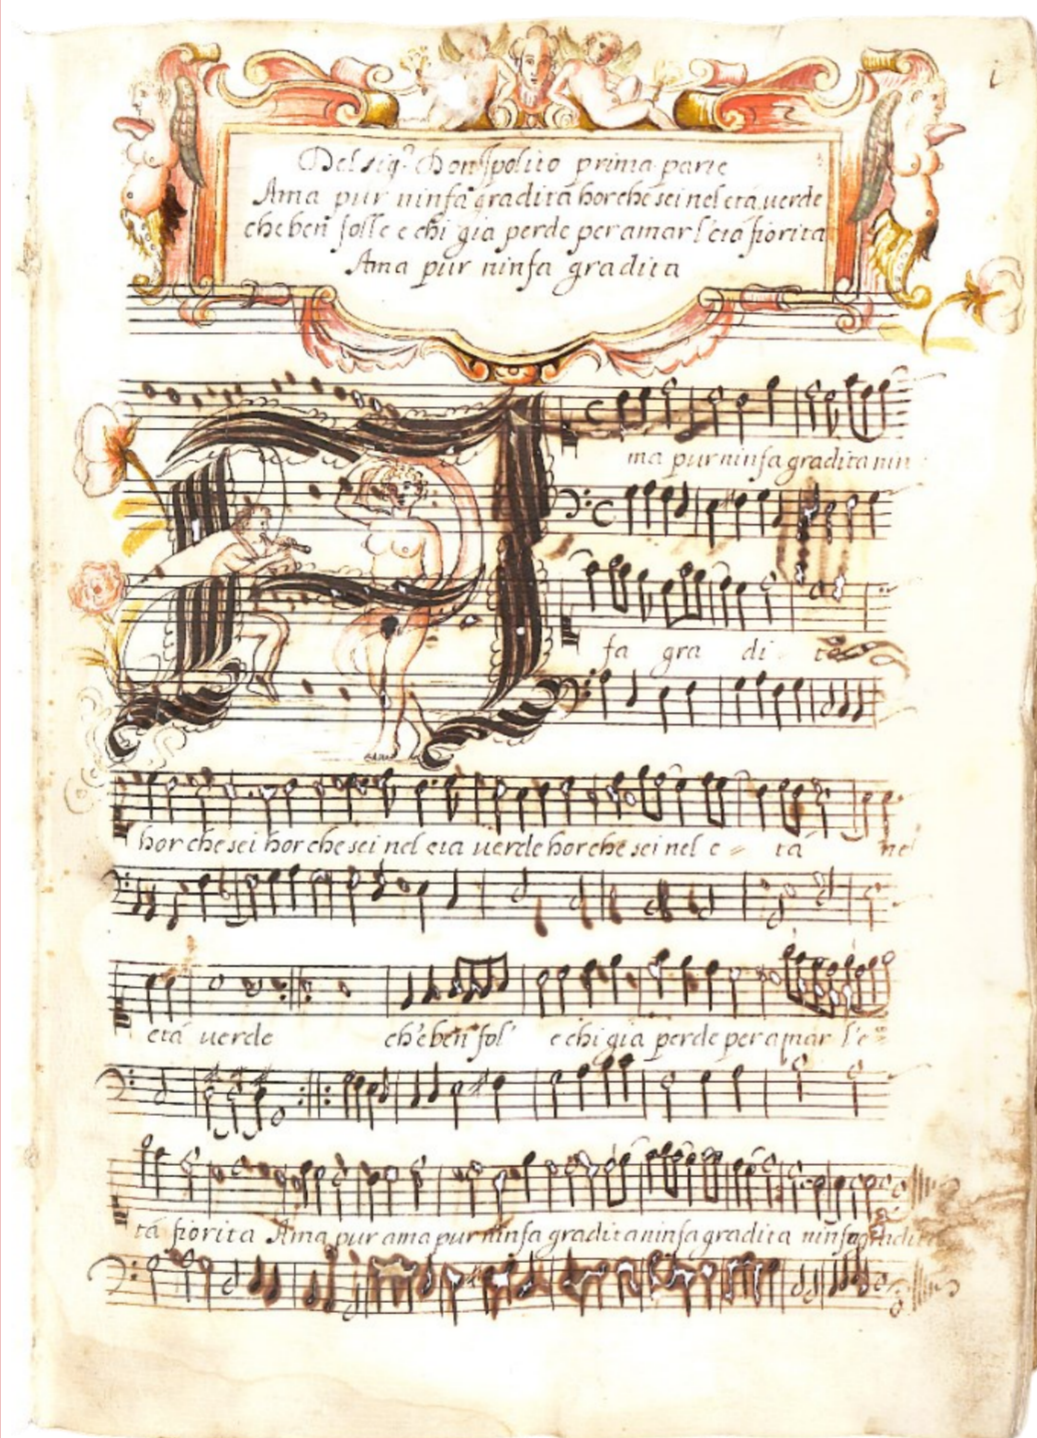 i
Del sigr Don Ipolito prima parte
Ama pur ninfa gradita hor che sei nel etá uerde
che ben folle e chi giá perde per amar l'etá fiorita
Ama pur ninfa gradita
ma pur ninfa gradita nin
fa gra di ta
hor che sei hor che sei nel eta uerde hor che sei nel e = tá nel
etá uerde ch'e ben fol' e chi giá perde per amar l'e =
tá fiorita Ama pur ama pur ninfa gradita ninfa gradita ninfa gradita